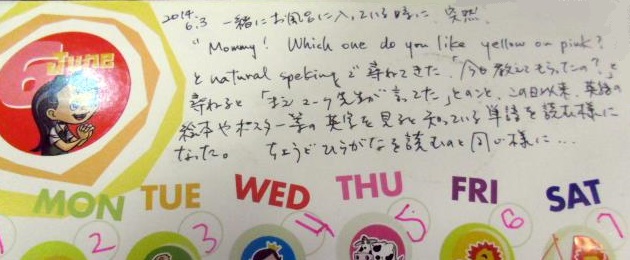 2014.
6.3 一緒にお風呂に入っている時に、突然、
"Mommy! Which one do you like yellow or pink?
と natural speking で尋ねてきた。「今日教えてもらったの?」と
尋ねると「マーク先生が言ってた」とのこと、この日以来、英語の
絵本やポスター等の英字を見ると知っている単語を読む様に
なった。 ちょうどひらがなを読むのと同じ様に…
6 June
MON TUE WED THU FRI SAT
2 3 4 5 6 7